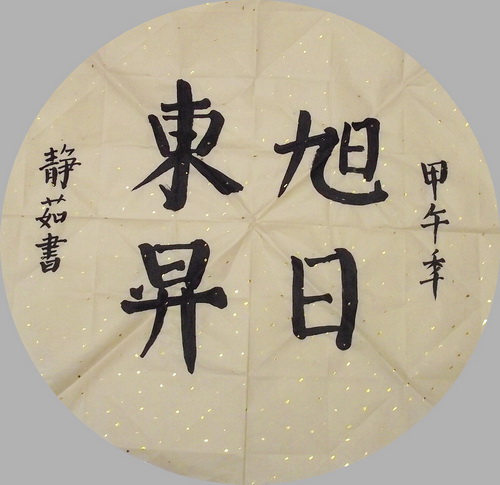 甲午季
旭日
東昇
静茹書